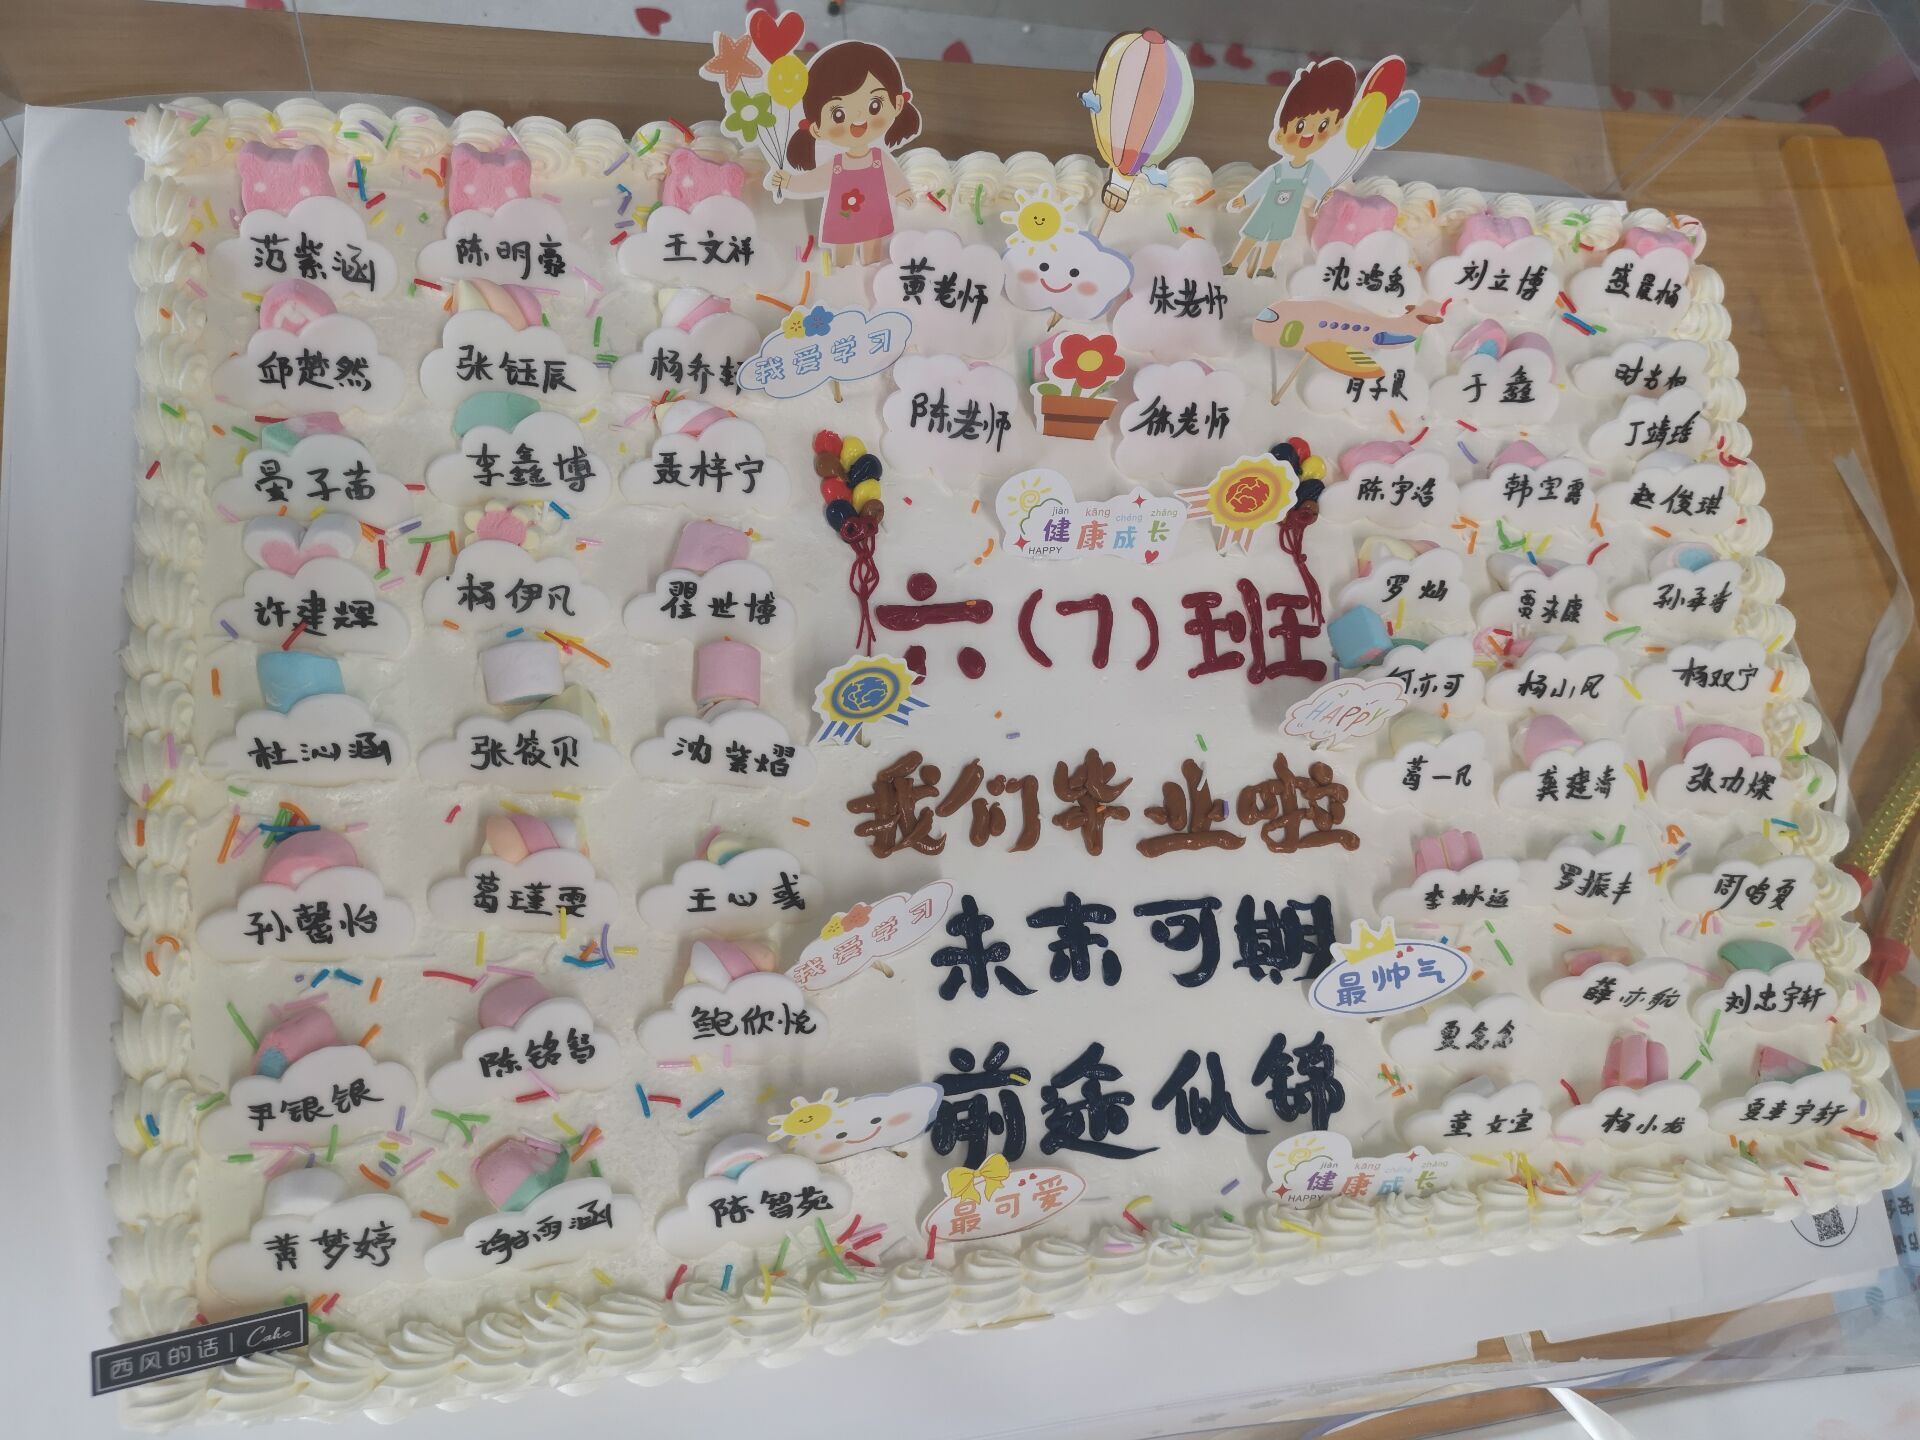 范紫涵
陈明豪
王文祥
黄老师
朱老师
沈鸿禹
刘立博
盛晨杨
邱楚然
张钰辰
杨乔
我爱学习
陈老师
徐老师
于鑫
丁靖
晏子茜
李鑫博
聂梓宁
陈宇浩
韩宝露
赵俊琪
jiàn kāng chéng zhǎng
健康成长
HAPPY
许建辉
杨伊凡
瞿世博
六(7)班
罗灿
贾永康
孙
杜沁涵
张筱贝
沈紫熠
何亦可
杨小凤
杨双宁
HAPPY
我们毕业啦
葛一凡
龚建涛
张功燦
孙馨怡
葛瑾雯
王心彧
我爱学习
未来可期
李林运
罗振丰
周鸣夏
尹银银
陈铭智
鲍欣悦
最帅气
薛亦航
刘忠宇轩
夏念念
前途似锦
黄梦婷
许雨涵
陈智苑
最可爱
jiàn kāng chéng zhǎng
健康成长
HAPPY
童女宝
杨小龙
夏李宇轩
西风的话 | Cake